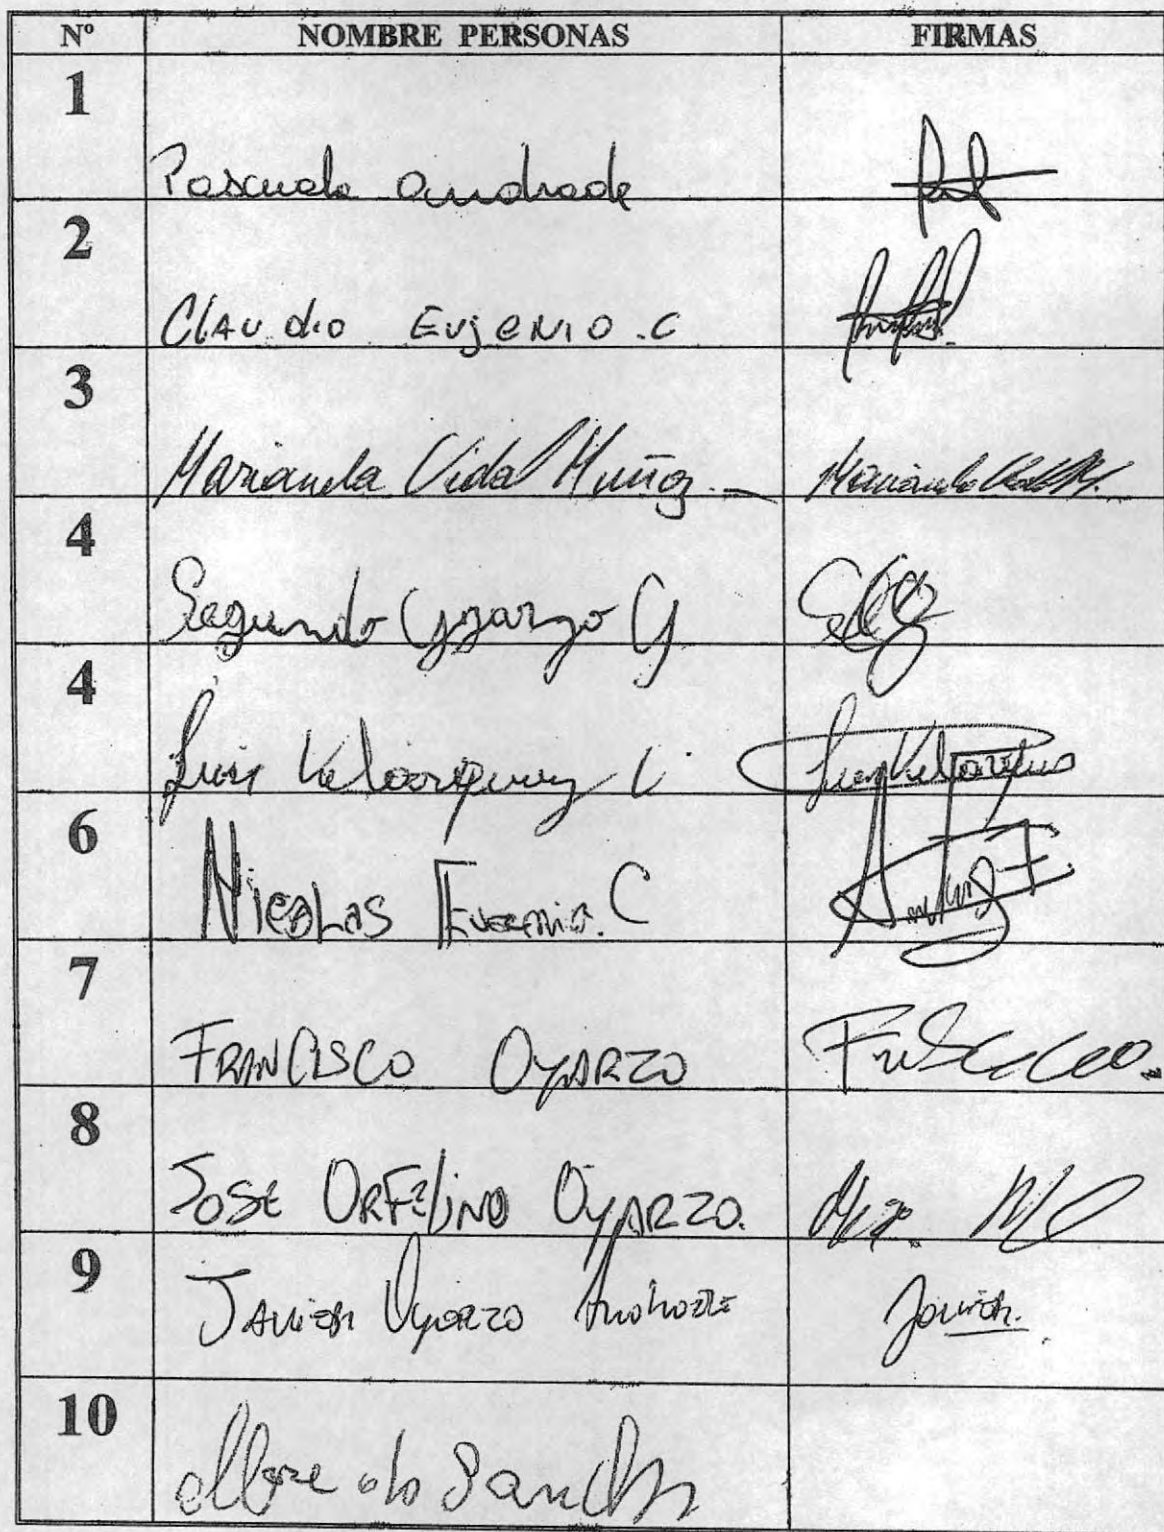 Nº NOMBRE PERSONAS FIRMAS
1 Pascuala Andrade
2 Claudio Eugenio .C
3 Marianela Vidal Muñoz
4 Segundo Oyarzo G
4 Luis Velasquez V.
6 Nicolas Eugenio. C
7 FRANCISCO OYARZO
8 JOSE ORFELINO OYARZO.
9 Javier Oyarzo Andrade Javier.
10 Sanch